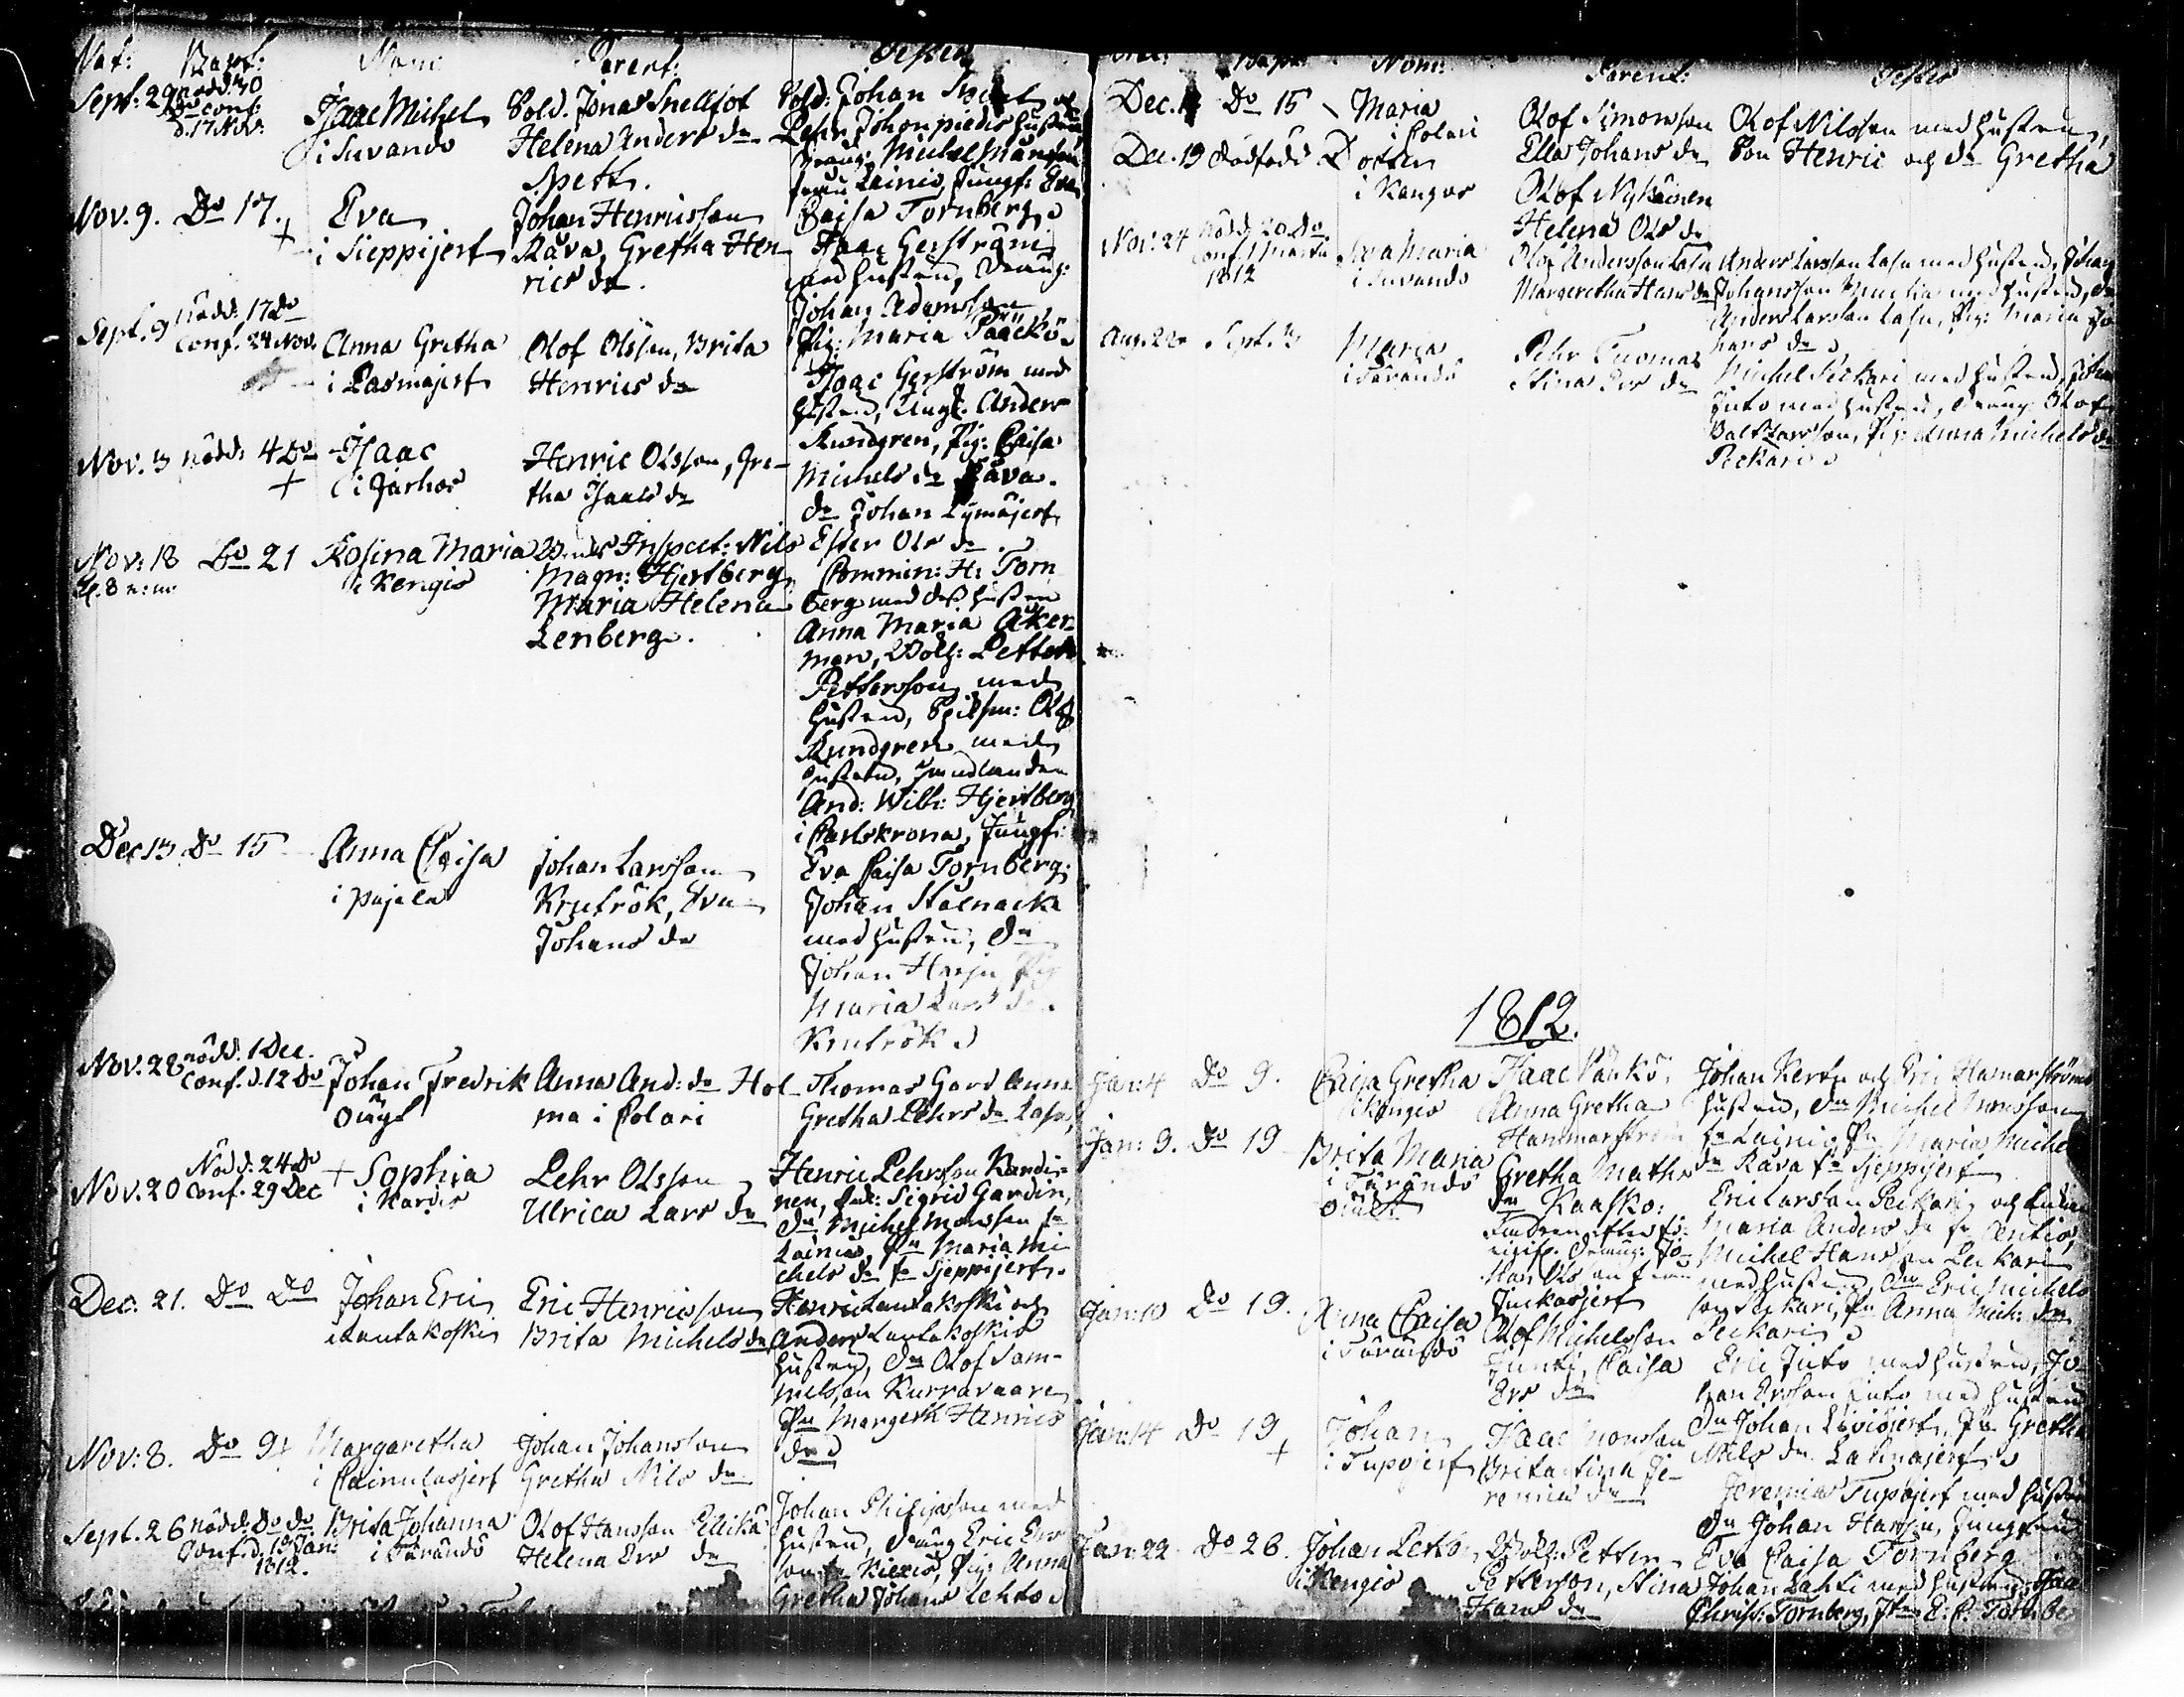 Nat: Bapt: Nom: Parent: Testes
Sept: 29 nödd: 30
conf:
d. 17 Nov:
Isaac Michel
i Juvando
Sold. Jonas Snellfot
Helena Anders dr
Spett.
Sold: Johan
Pehr Johanpiedis hustru
Dräng: Michel Månsson
Lainio, Jungf: Eva
Caisa Tornberg
Nov. 9. Do 17.
+
Eva
i Sieppijerf
Johan Henricsson
Rava, Gretha Hen
rics dr.
Isaac Gerström
med hustru, Dräng:
Johan Adamsson
Pig: Maria Pääckö
Sept. 9 nödd: 17 do
Conf. 24 Nov.
Anna Gretha
i Pasmajerf
Olof Olsson, Brita
Henrics dr
Isaac Gerström med
hustru, Ungk. Anders
Rundgren, Pig: Caisa
Michels dr Rava.
Nov. 3 nödd: 4 Do
+
Isaac
i Jarhos
Henric Olsson, Gre-
tha Isaacs dr
Dr Johan Kymäjerf,
Ester Ols dr
Nov: 18 Do 21
Kl. 8 e: m.
Rosina Maria
i Kengis
Inspect: Nils
Magn: Hjertberg
Maria Helena
Lenberg.
Commin: H: Torn
berg med dess hustru
Anna Maria Åker
man, Bolh: Petter
Pettersson med
hustru, Spilsm: Olof
Rundgren med
hustru, Handlanden
And: Wilh: Hjertberg
i Carlskrona, Jungf:
Eva Caisa Tornberg.
Dec 13 Do 15
Anna Caisa
i Pajala
Johan Larsson
Krutrök, Eva
Johans dr
Johan Stålnacke
med hustru, Dr
Johan Harju Pig
Maria Lars dr
Krutrök
Nov. 28 nödd: 1 Dec.
Conf. d. 12 Do
Johan Fredrik
oägt
Anna And: dr Hol
ma i Colari
Thomas Gard Anna
Gretha Pehrs dr Lassu
Nov. 20 Nödd: 24 do
Conf. 29 Dec
+ Sophia
i Kardis
Pehr Olsson
Ulrica Lars dr
Henric Pehrsson Kardi-
nen, Enk: Sigrid Gardin,
Dr Michel Monsson fr
Lainio, Pr Maria Mi
chels dr fr Sjeppijerf.
Dec. 21. Do Do
Johan Eric
i Lantakoski
Eric Henricsson
Brita Michels dr
Henric Lantakoski och
Anders Lantakoskis
hustru, Dr Olof Sam-
uelsson Kurravaara
Pr Margeth Henrics
dr
Nov: 8. Do 9 +
Margaretha
i Cainulasjerf
Johan Johansson
Gretha Nils dr
Johan Philipsson med
hustru, Dräng Eric Ers
son fr Kieris, Pig: Anna
Gretha Johans Lehto
Sept. 26 nödd: do do
Conf. d. 19 Jan:
1812.
Brita Johanna
i Tärändö
Olof Hansson Pellikä
Helena Ers dr
Bapt: Nom: Parent: Testes
Dec. Do 15
Maria
i Colari
Olof Simonsson
Ella Johans dr
Olof Nilsson med hustru,
Son Henric och dr Gretha
Dec. 19 Dödfödd Dotter
i Kangos
Olof Nykänen
Helena Ols dr
Nov: 24 nödd: 20 do
Conf. 1 Martii
1812
Eva Maria
i Juvando
Olof Andersson Lasu
Margaretha Hans dr
Anders Larsson Lasu med hustru, Johan
Johansson med hustru, Dr
Anders Larsson Lasu, Pig: Maria Jo
hans dr
Aug. 22 Sept. 3
Maria
i Tärändö
Pehr Tuomas
Stina Ers dr
Michel Peckari med hustru, Johan
Juto med hustru, Dräng Olof
Baltzarsson, Pig: Anna Michels dr
Peckari
1812.
Jan: 4 Do 9.
Caisa Gretha
i Kengis
Isaac Pänkö,
Anna Gretha
Hammarström
Johan Kerttu och Eric Hamarströms
hustru, Dr Michel Monsson
fr Lainio Pr Maria Michel
dr Rava fr Sjeppijerf
Jan: 9. Do 19
Brita Maria
i Tärändö
oägt
Gretha Maths
dr Kaasko:
Fadren efter
Dräng: Jo
han Olsson från
Juckasjerf
Eric Larsson Peckari och Enkan
Maria Anders dr fr Antis,
Michel Hansson Peckari
med hustru, Dr Eric Michels
son Peckari, Pr Anna Mich: dr
Peckari
Jan: 10 Do 19.
Anna Caisa
i Tärändö
Olof Michelsson
Junti, Caisa
Ers dr
Eric Juto med hustru, Jo
han Ersson Juto med hustru
Dr Johan Liviöjerf, Pr Gretha
Nils dr Lahnajerf
Jan: 14 Do 19
+
Johan
i Tupojerf
Isaac Monsson
Brita Stina Je-
remias dr
Jeremias Tupojerf med hustru
Dr Johan Harju, Jungfru
Eva Caisa Tornberg
Jan: 22 Do 26.
Johan Petter
i Kengis
Bolh: Petter
Petterson, Stina
Hans dr
Johan Lahti med hustru, Isaac
Christ: Tornberg, Jfr E: C: Tornbe